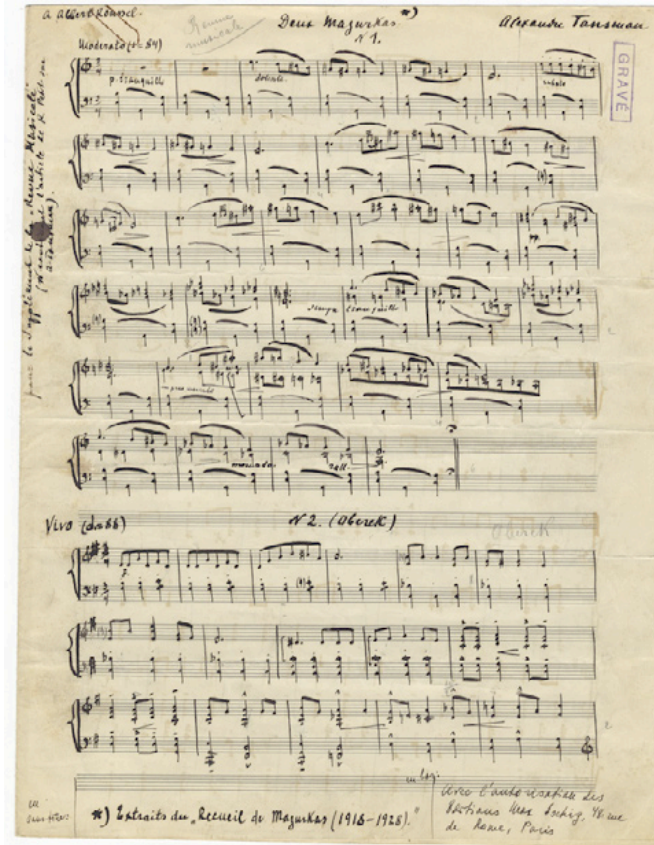 a Albert Roussel.
Revue
musicale
Deux Mazurkas *)
Alexandre Tansman
N 1.
Moderato (♩= 84)
GRAVÉ
p. tranquillo
dolente.
rubato
pour le Supplément de la "Revue Musicale"
pp
sempre tranquillo
un poco
rall.
Vivo
N 2. (Oberek)
Oberek
f.
*) Extraits du „Recueil de Mazurkas (1918-1928)."
avec l'autorisation des
Editions Max Eschig, 48 rue
de Rome, Paris